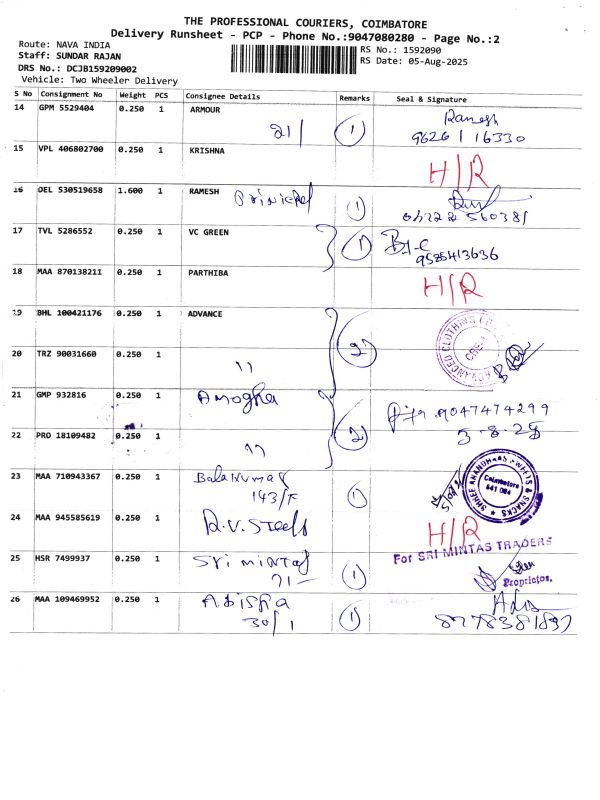 THE PROFESSIONAL COURIERS, COIMBATORE
Delivery Runsheet - PCP - Phone No.:9047080280 - Page No.:2
Route: NAVA INDIA
Staff: SUNDAR RAJAN
DRS No.: DCJB159209002
Vehicle: Two Wheeler Delivery
RS No.: 1592090
RS Date: 05-Aug-2025
S No Consignment No Weight PCS Consignee Details Remarks Seal & Signature
14 GPM 5529404 0.250 1 ARMOUR 21/ 1 Ramesh
9626116330
15 VPL 406802700 0.250 1 KRISHNA H/R
16 DEL 530519658 1.600 1 RAMESH 1
17 TVL 5286552 0.250 1 VC GREEN 1
9585413636
18 MAA 870138211 0.250 1 PARTHIBA H/R
19 BHL 100421176 0.250 1 ADVANCE 2
20 TRZ 90031660 0.250 1 11
21 GMP 932816 0.250 1 Amogha 9047474299
22 PRO 18109482 0.250 1 11 2 5-8-25
23 MAA 710943367 0.250 1 Balakumar
143/F 1
SHREE ANANDHAAS SWEETS & SNACKS
Coimbatore
641 004
24 MAA 945585619 0.250 1 R.V. Steels H/R
25 HSR 7499937 0.250 1 Sri mintas
71- 1
For SRI MINTAS TRADERS
Proprietor.
26 MAA 109469952 0.250 1
30/1 1